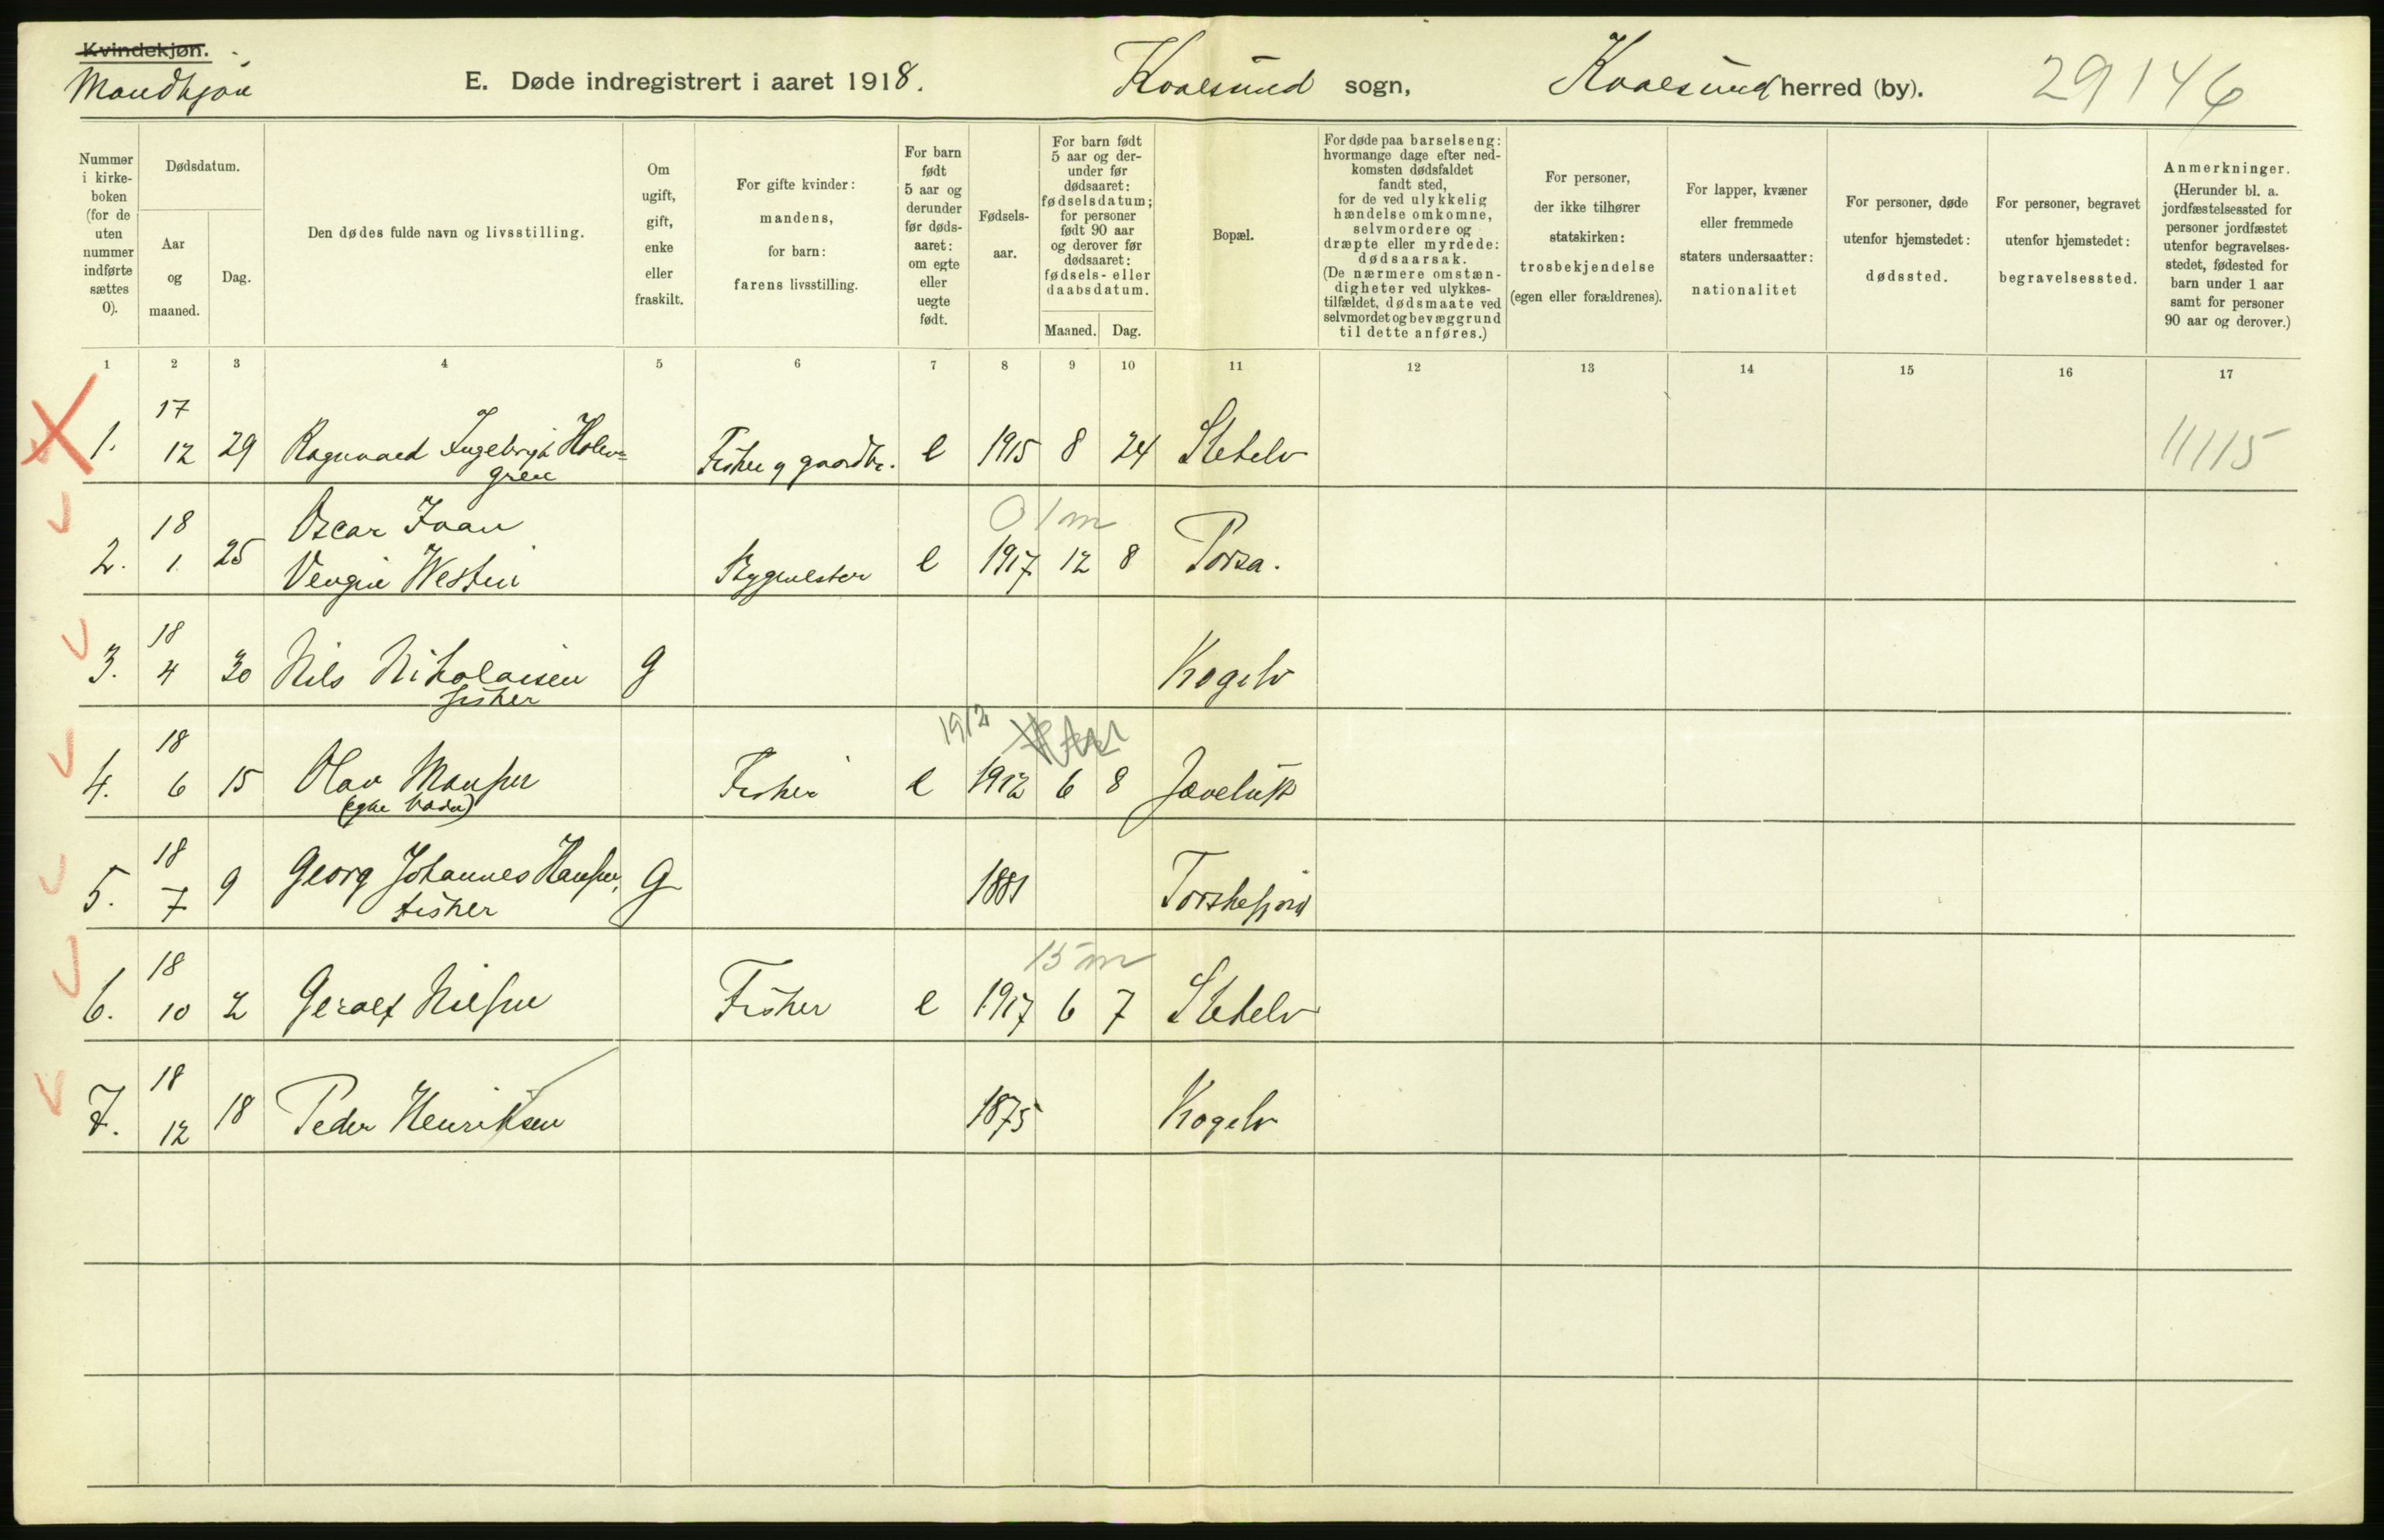 Kvindekjøn.
Mandkjøn
E. Døde indregistrert i aaret 1918.
Kvalsund sogn,
Kvalsund herred (by).
29 146
Nummer i kirke-boken (for de uten nummer indførte sættes 0).
Dødsdatum.
Aar og maaned.
Dag.
Den dødes fulde navn og livsstilling.
Om ugift, gift, enke eller fraskilt.
For gifte kvinder: mandens, for barn: farens livsstilling.
For barn født 5 aar og derunder før døds-aaret: om egte eller uegte født.
Fødsels-aar.
For barn født 5 aar og der-under før dødsaaret: fødselsdatum; for personer født 90 aar og derover før dødsaaret: fødsels- eller daabsdatum.
Maaned. Dag.
Bopæl.
For døde paa barselseng: hvormange dage efter ned-komsten dødsfaldet fandt sted, for de ved ulykkelig hændelse omkomne, selvmordere og dræpte eller myrdede: dødsaarsak. (De nærmere omstæn-digheter ved ulykkes-tilfældet, dødsmaate ved selvmordet og bevæggrund til dette anføres.)
For personer, der ikke tilhører statskirken: trosbekjendelse (egen eller forældrenes).
For lapper, kvæner eller fremmede staters undersaatter: nationalitet
For personer, døde utenfor hjemstedet: dødssted.
For personer, begravet utenfor hjemstedet: begravelsessted.
Anmerkninger. (Herunder bl. a. jordfæstelsessted for personer jordfæstet utenfor begravelses-stedet, fødested for barn under 1 aar samt for personer 90 aar og derover.)
1 2 3 4 5 6 7 8 9 10 11 12 13 14 15 16 17
1. 17 12 29 Ragnvald Ingebrigt Holm=
gren Fisker g gaardbr. e 1915 8 24 Stetelv 11115
0 1 m
2. 18 1 25 Oscar Ivan
Westin e 1917 12 8 Porsa.
3. 18 4 30 Nils Nikolaisen g Kogelv
fisker
1912
4. 18 6 15 Olav Mansen Fisker e 1912 6 8
5. 18 7 9 Georg Johannes Hansen, G 1881 Torskefjord
fisker
15 m
6. 18 10 2 Geralf Nilsen Fisker e 1917 6 7 Stetelv
7. 18 12 18 Peder Henriksen 1875 Kogelv